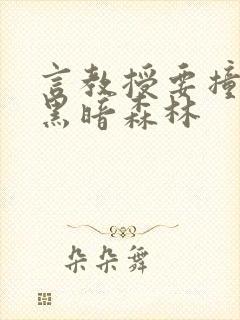 言教授要撞
黑暗森林
朵朵舞